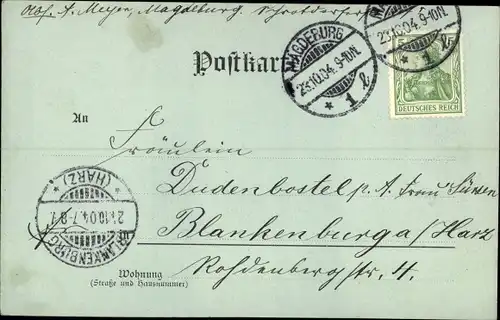 Abs. A. Meyer, Magdeburg,
MAGDEBURG
23.10.04. 9-10N.
* 1 l
23.10.04. 9-10N.
* 1 l
Postkarte
DEUTSCHES REICH
An
Fräulein
Dudenbostel p. A. Frau
Blankenburg a/Harz
Rohdenbergstr. 4.
BLANKENBURG
* (HARZ) *
10.04.7-8
Wohnung
(Straße und Hausnummer)